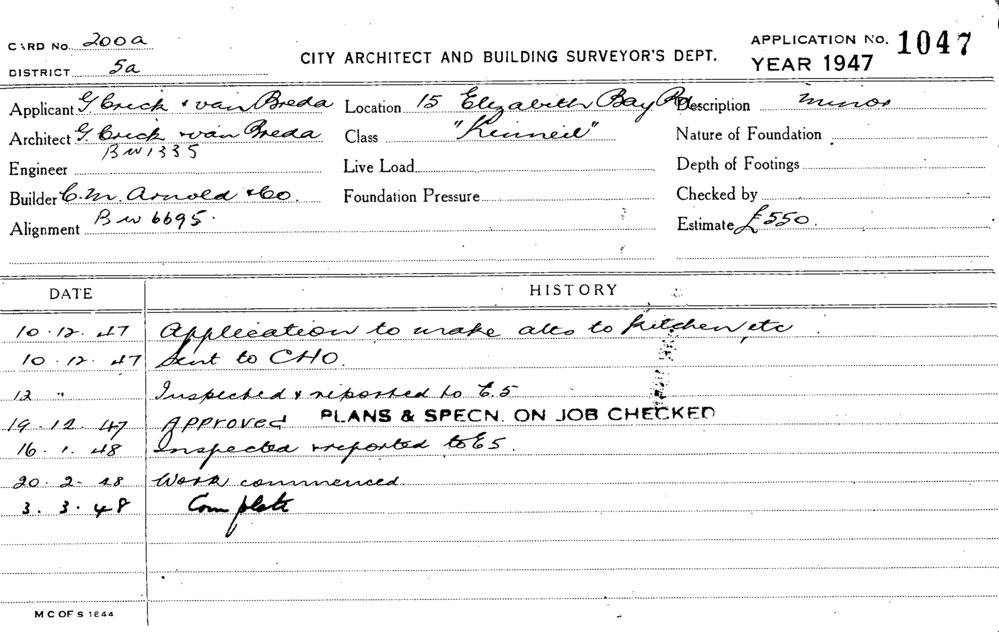 CARD No. 200a
DISTRICT 5a
CITY ARCHITECT AND BUILDING SURVEYOR'S DEPT.
APPLICATION No. 1047
YEAR 1947
Applicant G. Crick & van Breda Location 15 Elizabeth Bay Rd Description minor
Architect G. Crick & van Breda Class "Kinneil" Nature of Foundation
BW1335
Engineer Live Load Depth of Footings
Builder C. M. Arnold & Co. Foundation Pressure Checked by
Alignment BW 6695. Estimate £550.
DATE HISTORY
10.12.47 Application to make alts to kitchen etc.
10.12.47 Sent to CHO.
12 " Inspected & reported to E.5
19.12.47 Approved PLANS & SPECN. ON JOB CHECKED
16.1.48 Inspected & reported to E5.
20.2.48 Work commenced
3.3.48 Complete
M C OF S 1844